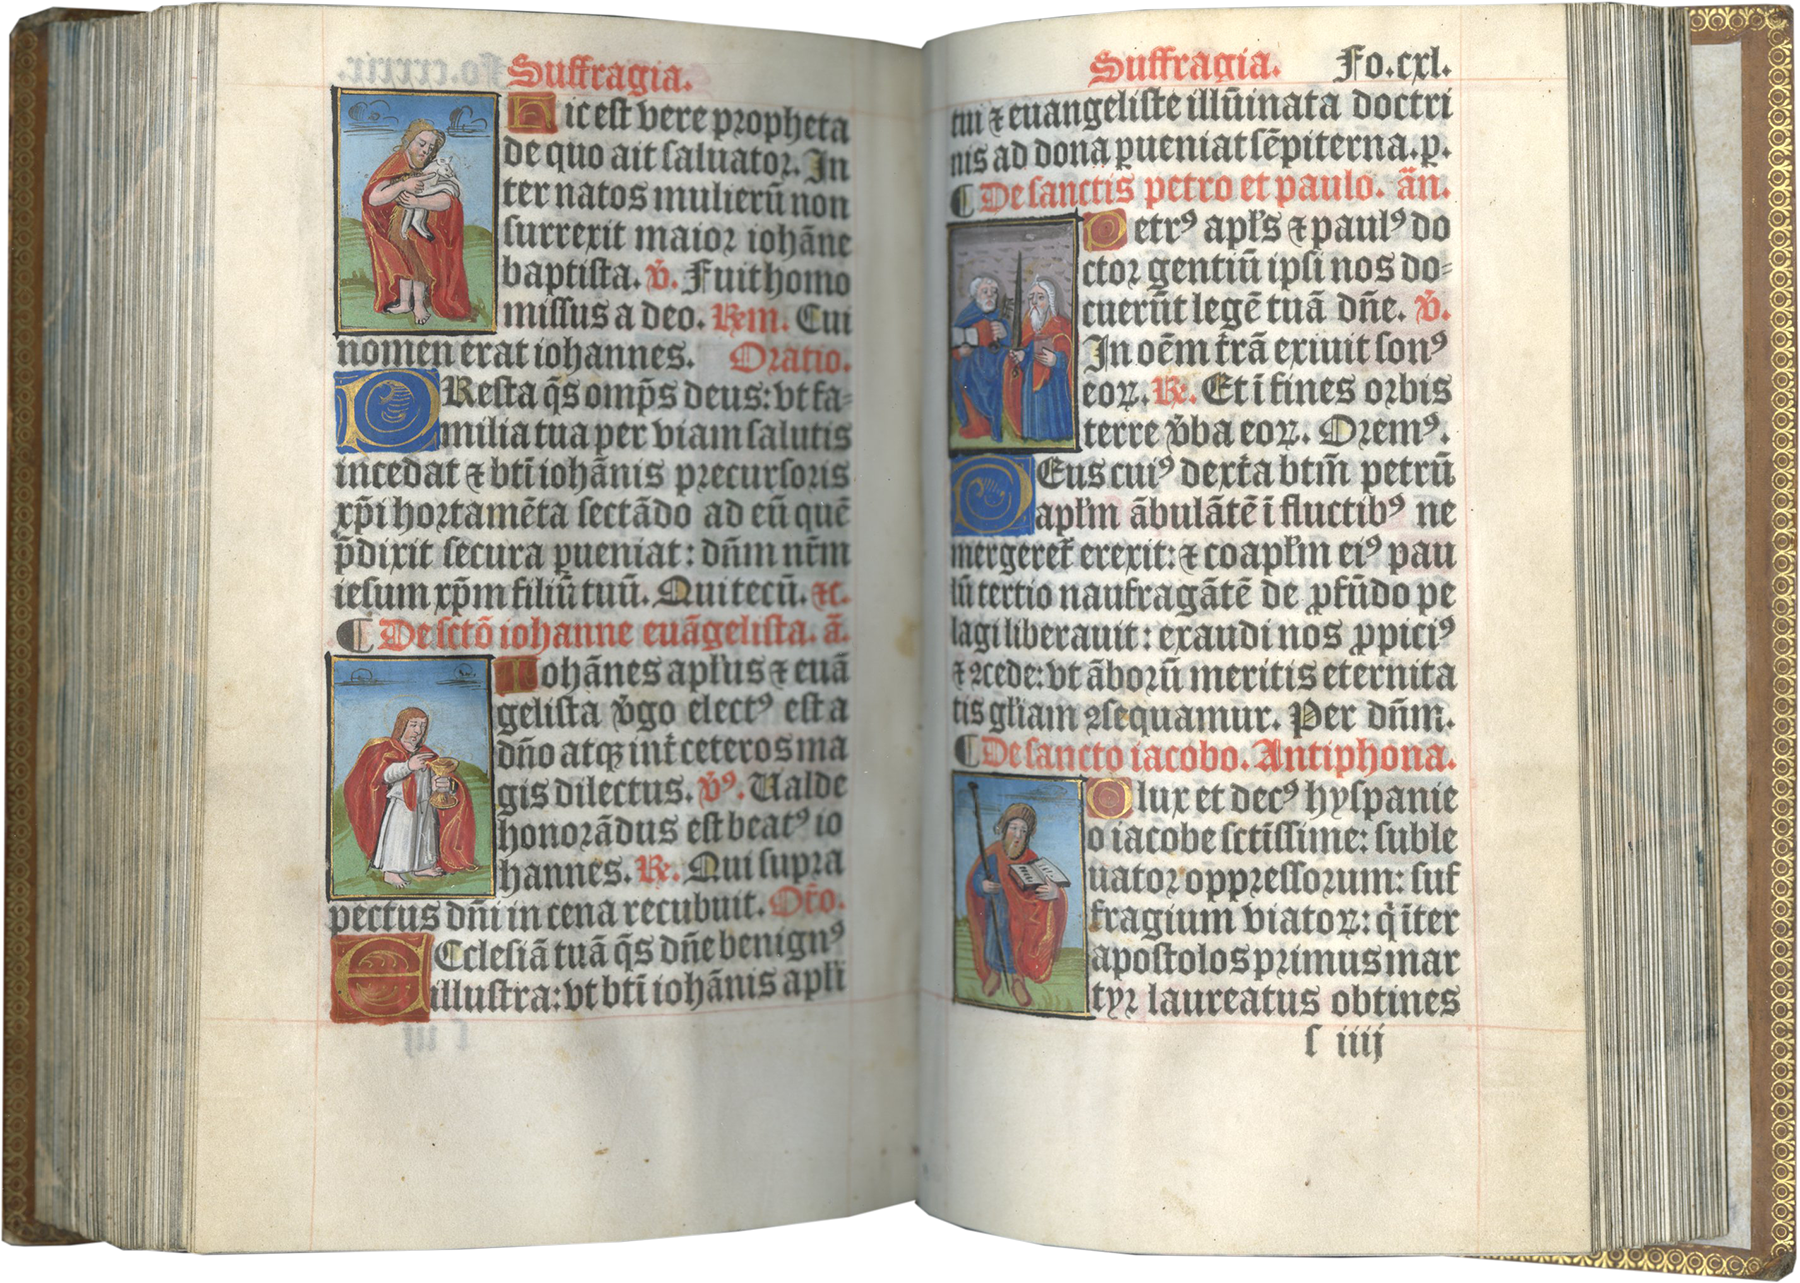 Suffragia.
Hic est vere propheta
de quo ait saluator. In
ter natos mulierū non
surrexit maior iohāne
baptista. v̄. Fuit homo
missus a deo. Rem. Cui
nomen erat iohannes. Oratio.
PResta q̄s omp̄s deus: vt fa-
milia tua per viam salutis
incedat ⁊ bt̄i iohānis precursoris
xp̄i hortamēta sectādo ad eū quē
p̄dixit secura ꝑueniat: dn̄m nr̄m
iesum xp̄m filiū tuū. Qui tecū. ⁊c.
¶ De sctō iohanne euāgelista. ā.
Iohānes apl'us ⁊ euā
gelista v̄go electꝰ est a
dn̄o atqꝫ int̄ ceteros ma
gis dilectus. v̄ꝰ. Ualde
honorādus est beatꝰ io
hannes. ℞. Qui supra
pectus dn̄i in cena recubuit. Or̄o.
ECclesiā tuā q̄s dn̄e benignꝰ
illustra: vt bt̄i iohānis apl'i
Suffragia. Fo.cxl.
tui ⁊ euangeliste illūinata doctri
nis ad dona ꝑueniat sēpiterna. ꝑ.
¶ De sanctis petro et paulo. ān.
Petrꝰ apl's ⁊ paulꝰ do
ctor gentiū ipsi nos do-
cuerūt legē tuā dn̄e. v̄.
In oēm t̄rā exiuit sonꝰ
eoꝝ. ℞. Et ī fines orbis
terre v̄ba eoꝝ. Oremꝰ.
DEus cuiꝰ dext̄a btm̄ petrū
apl'm ābulātē ī fluctibꝰ ne
mergeret̄ erexit: ⁊ coapl'm eiꝰ pau
lū tertio naufragātē de ꝓfūdo pe
lagi liberauit: exaudi nos ꝓpiciꝰ
⁊ ꝯcede: vt āborū meritis eternita
tis gl'iam ꝯsequamur. Per dn̄m.
¶ De sancto iacobo. Antiphona.
O lux et decꝰ hyspanie
o iacobe sctīssime: suble
uator oppressorum: suf
fragium viatoꝝ: q̄ īter
apostolos primus mar
tyr laureatus obtines
s iiij